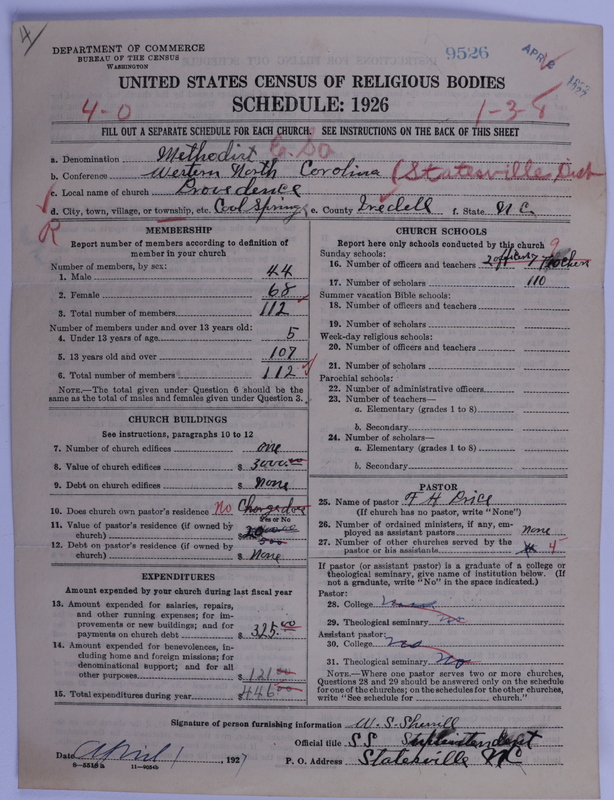 4
DEPARTMENT OF COMMERCE
BUREAU OF THE CENSUS
WASHINGTON
9526
APR
1927
UNITED STATES CENSUS OF RELIGIOUS BODIES
SCHEDULE: 1926
4-0
1-3-8
FILL OUT A SEPARATE SCHEDULE FOR EACH CHURCH. SEE INSTRUCTIONS ON THE BACK OF THIS SHEET
a. Denomination Methodist E. So
b. Conference Western North Carolina (Statesville Dist
c. Local name of church Providence
d. City, town, village, or township, etc. Cool Springs e. County Iredell f. State N.C.
R
MEMBERSHIP
Report number of members according to definition of
member in your church
Number of members, by sex:
1. Male 44
2. Female 68
3. Total number of members. 112
Number of members under and over 13 years old:
4. Under 13 years of age 5
5. 13 years old and over 107
6. Total number of members 112
NOTE.—The total given under Question 6 should be the
same as the total of males and females given under Question 3.
CHURCH BUILDINGS
See instructions, paragraphs 10 to 12
7. Number of church edifices one
8. Value of church edifices $ 3000.00
9. Debt on church edifices $ None
10. Does church own pastor's residence No Charge does
Yes or No
11. Value of pastor's residence (if owned by
church) $
12. Debt on pastor's residence (if owned by 500
church) $ None
EXPENDITURES
Amount expended by your church during last fiscal year
13. Amount expended for salaries, repairs,
and other running expenses; for im-
provements or new buildings; and for
payments on church debt $ 325.00
14. Amount expended for benevolences, in-
cluding home and foreign missions; for
denominational support; and for all
other purposes $ 121.00
15. Total expenditures during year $ 446.00
CHURCH SCHOOLS
Report here only schools conducted by this church
Sunday schools: 9
16. Number of officers and teachers 2 officers 7 Teachers
17. Number of scholars 110
Summer vacation Bible schools:
18. Number of officers and teachers
19. Number of scholars
Week-day religious schools:
20. Number of officers and teachers
21. Number of scholars
Parochial schools:
22. Number of administrative officers
23. Number of teachers—
a. Elementary (grades 1 to 8)
b. Secondary
24. Number of scholars—
a. Elementary (grades 1 to 8)
b. Secondary
PASTOR
25. Name of pastor F H Price
(If church has no pastor, write "None")
26. Number of ordained ministers, if any, em-
ployed as assistant pastors None
27. Number of other churches served by the
pastor or his assistants 5
If pastor (or assistant pastor) is a graduate of a college or
theological seminary, give name of institution below. (If
not a graduate, write "No" in the space indicated.)
Pastor:
28. College
29. Theological seminary no
Assistant pastor:
30. College no
31. Theological seminary no
NOTE.—Where one pastor serves two or more churches,
Questions 28 and 29 should be answered only on the schedule
for one of the churches; on the schedules for the other churches,
write "See schedule for church."
Signature of person furnishing information W. S. Sherrill
Official title S S Superintendent
Date April 1 1927 P. O. Address Statesville NC
8—5518a 11—9034b